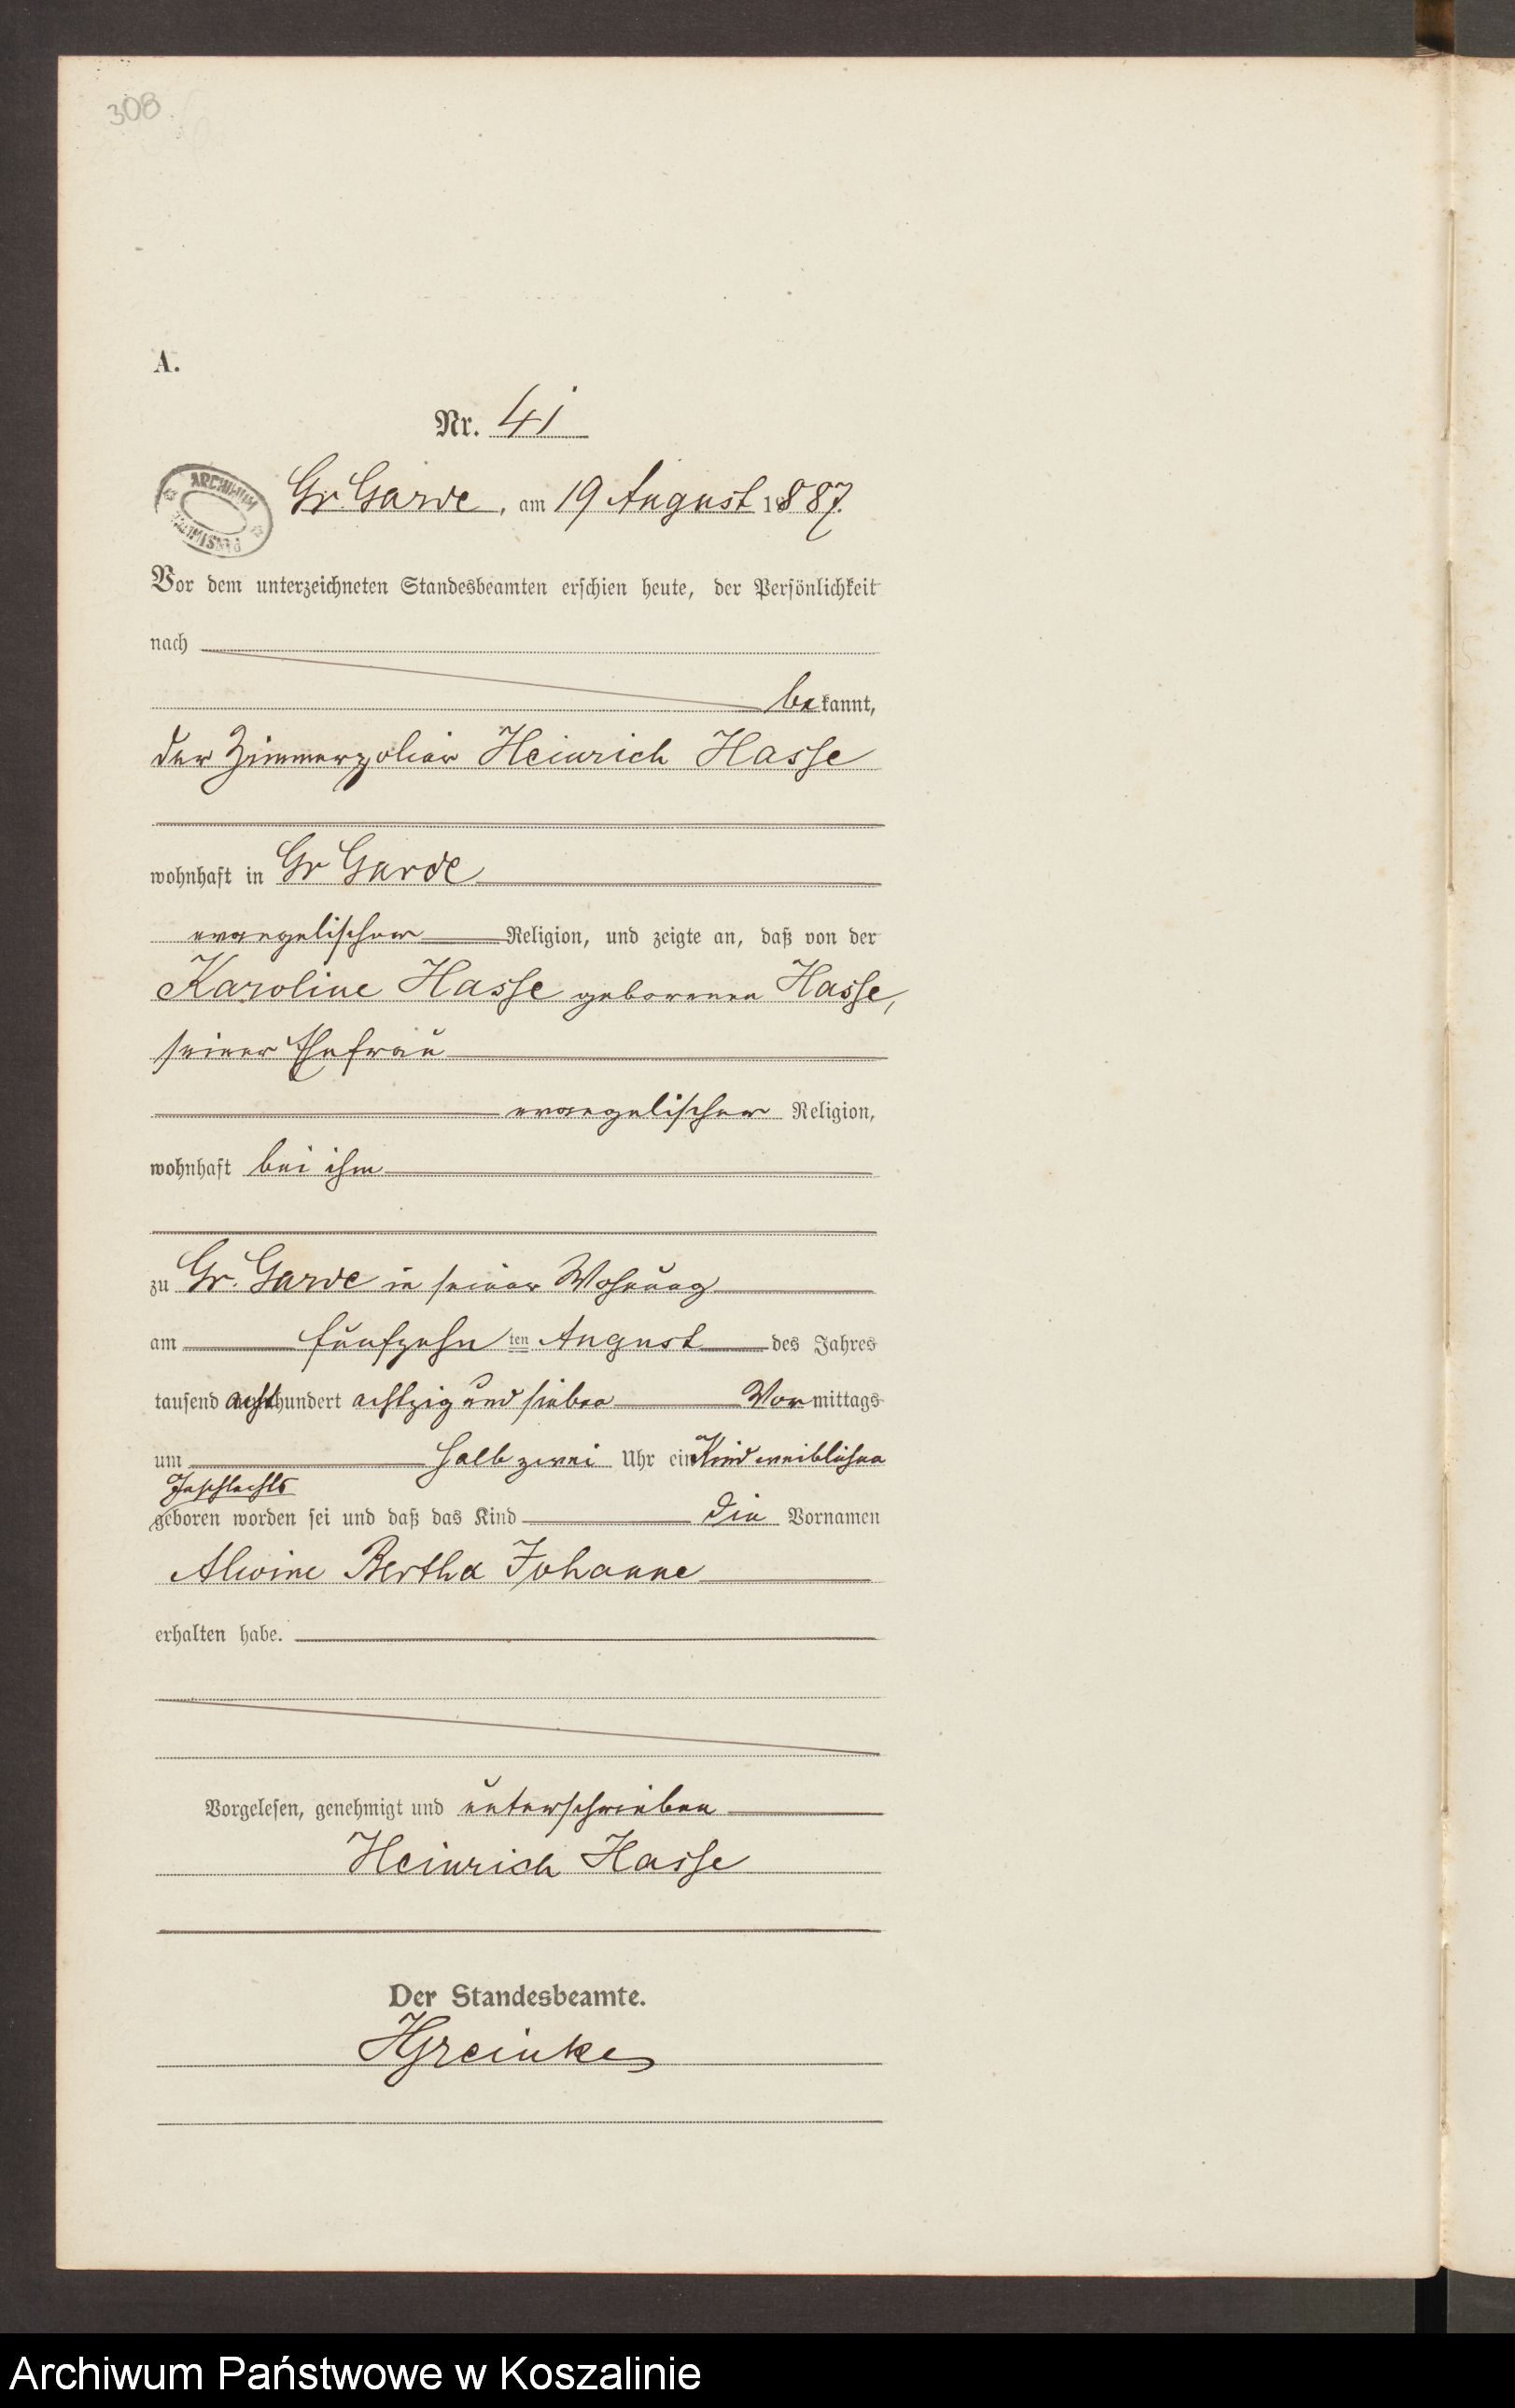 308
A.
Nr. 41
ARCHIWUM
Gr. Garde, am 19 August 1887.
Vor dem unterzeichneten Standesbeamten erschien heute, der Persönlichkeit
nach
bekannt,
der Zimmerpolier Heinrich Hasse
wohnhaft in Gr Garde
evangelischer Religion, und zeigte an, daß von der
Karoline Hasse geborenen Hasse,
seiner Ehefrau
evangelischer Religion,
wohnhaft bei ihm
zu Gr. Garde in seiner Wohnung
am fünfzehn ten August des Jahres
tausend achthundert achtzig und sieben Vormittags
um halb zwei Uhr ein Kind weiblichen
Geschlechts
geboren worden sei und daß das Kind die Vornamen
Alwine Bertha Johanne
erhalten habe.
Vorgelesen, genehmigt und unterschrieben
Heinrich Hasse
Der Standesbeamte.
HGreinke
Archiwum Państwowe w Koszalinie